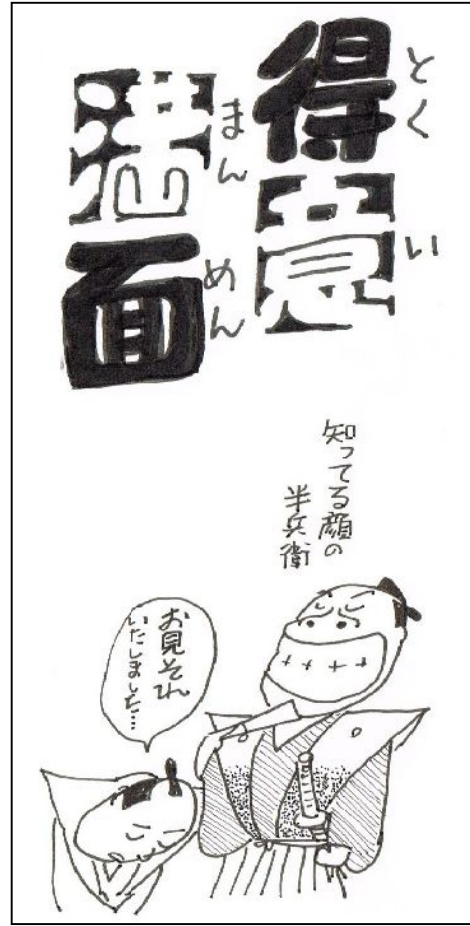 得意
とくい
満面
まんめん
知ってる顔の
半兵衛
お見それ
いたしました…